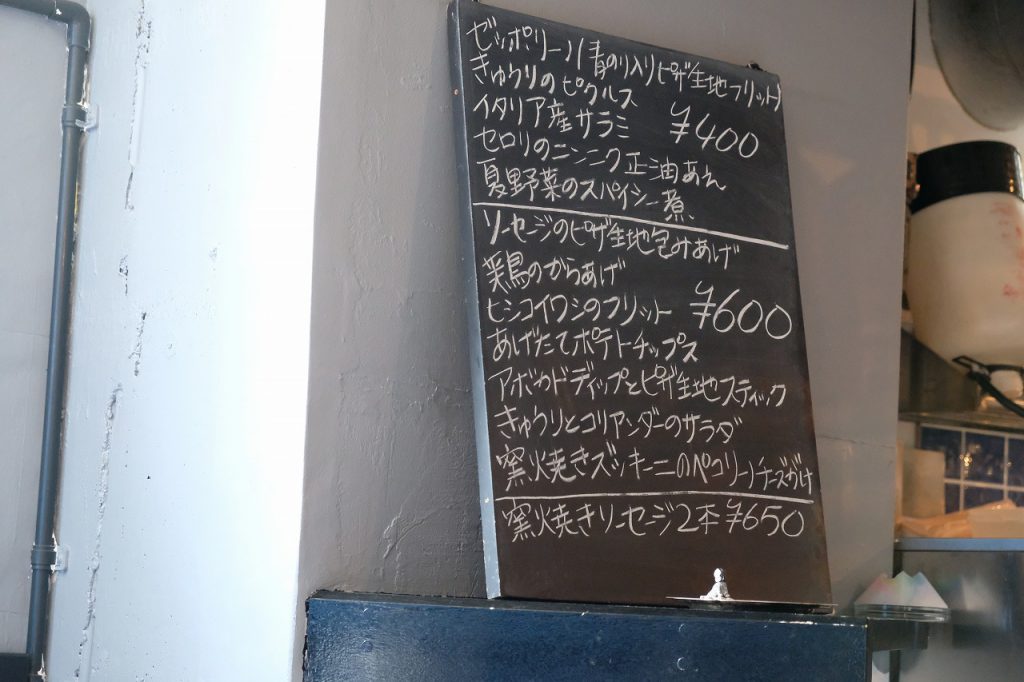 ゼッポリーノ(青のり入りピザ生地フリット)
きゅうりのピクルス
イタリア産サラミ ¥400
セロリのニンニク正油あえ
夏野菜のスパイシー煮
ソーセージのピザ生地包みあげ
鶏のからあげ
ヒシコイワシのフリット ¥600
あげたてポテトチップス
アボカドディップとピザ生地スティック
きゅうりとコリアンダーのサラダ
窯火焼きズッキーニのペコリーノチーズがけ
窯火焼きソーセージ2本 ¥650